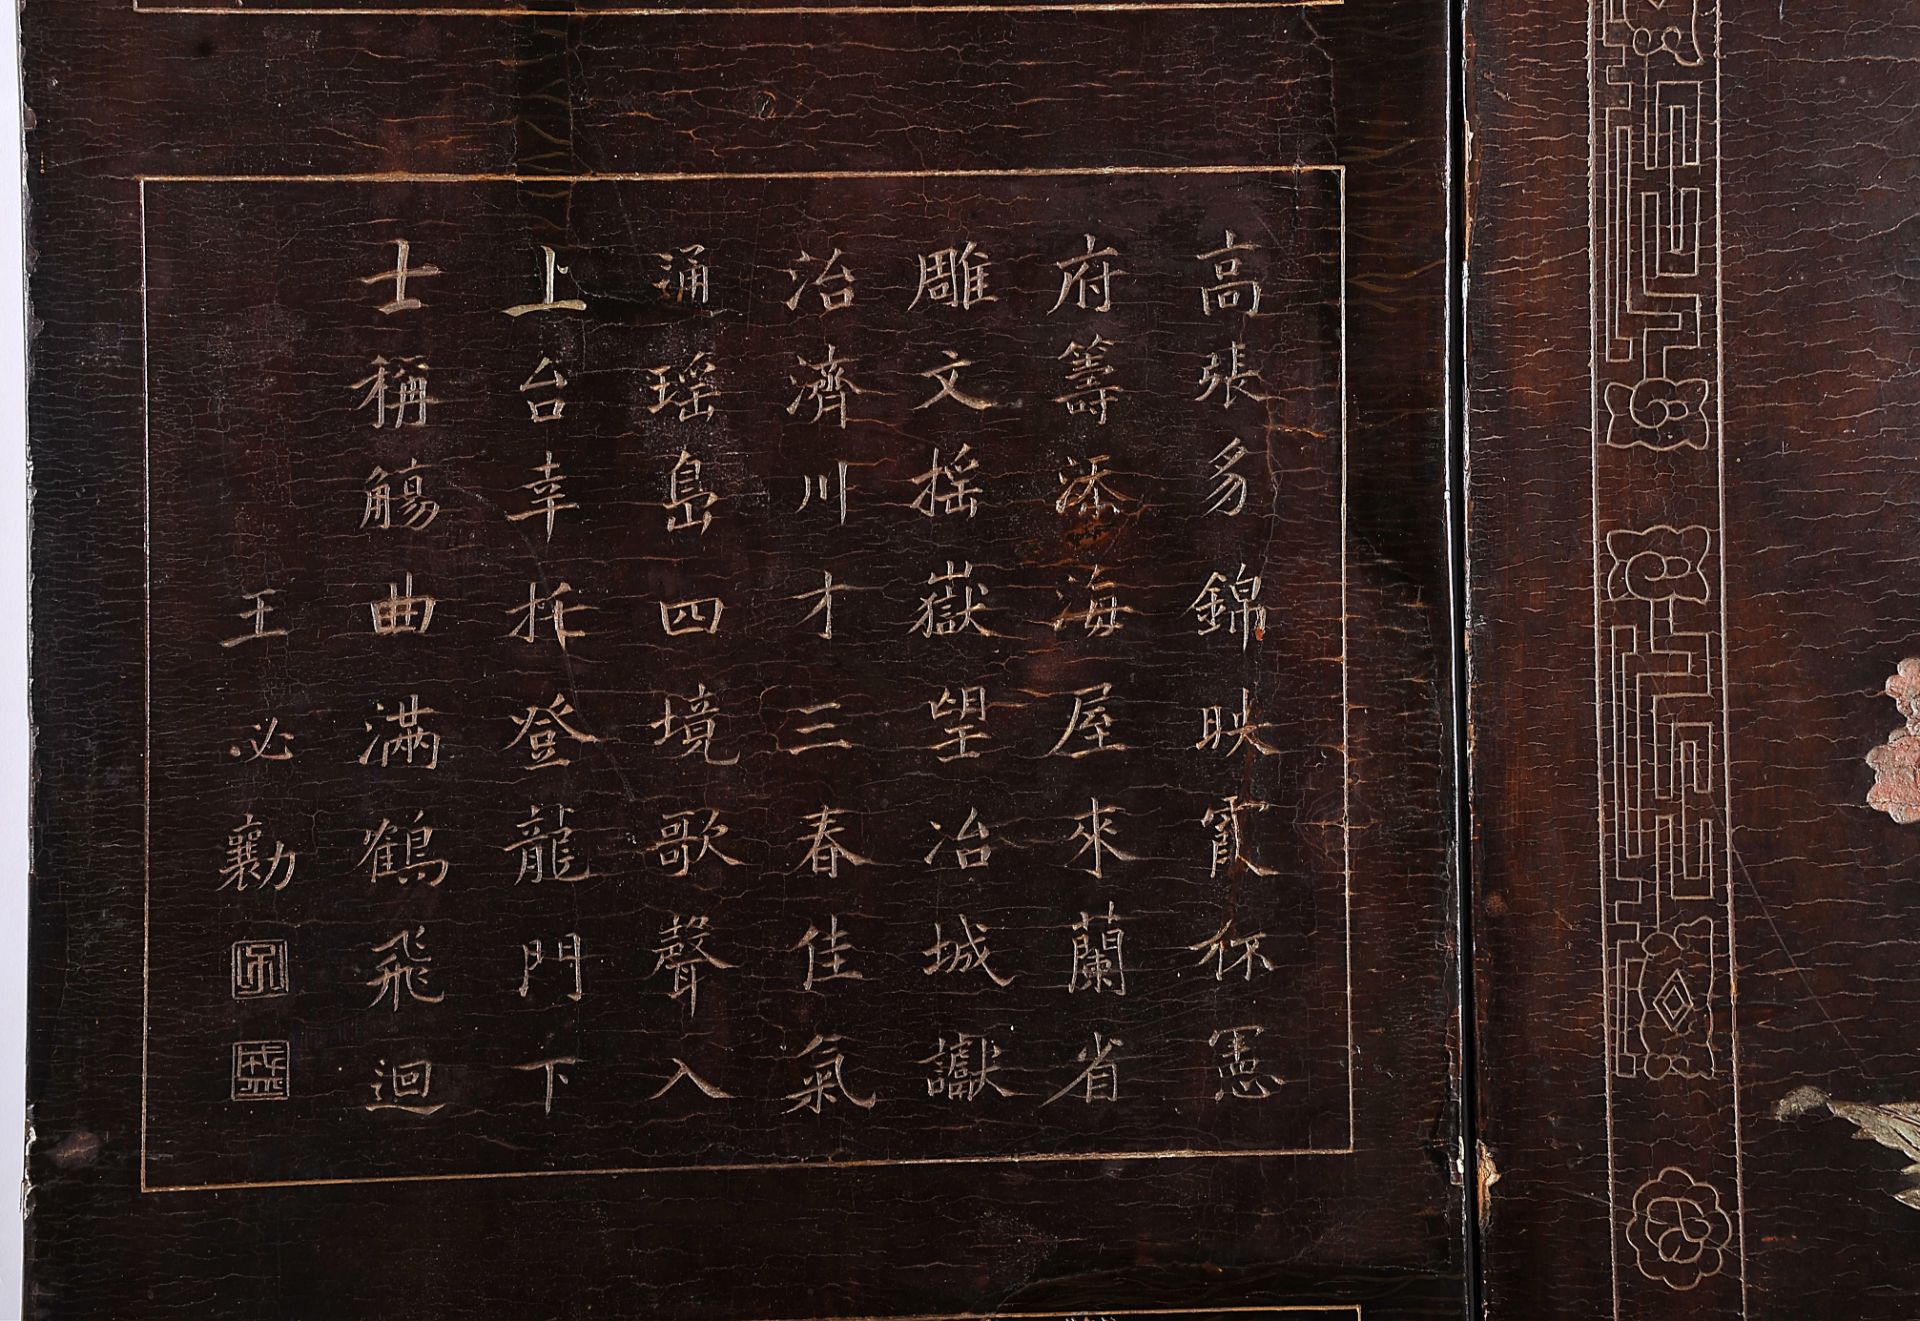 高張多錦映霞杯憲
府籌添海屋來蘭省
雕文搖嶽望冶城讞
治濟川才三春佳氣
通瑤島四境歌聲入
上台幸拆登龍門下
士稱觴曲滿鶴飛迴
王必勷